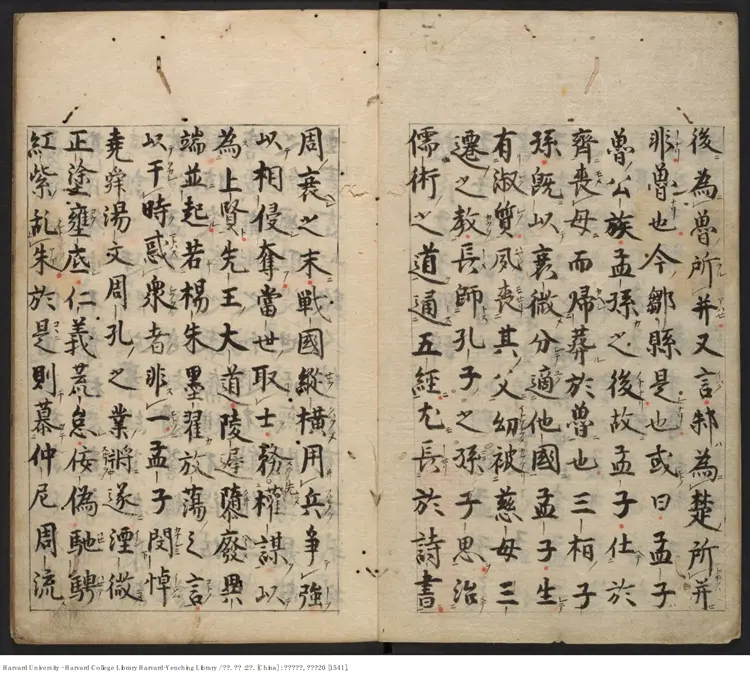 後為魯所并又言邾為楚所并
非魯也今鄒縣是也或曰孟子
魯公族孟孫之後故孟子仕於
齊喪母而帰葬於魯也三桓子
孫既以衰微分適他國孟子生
有淑質夙喪其父幼被慈母三
遷之教長師孔子之孫子思治
儒術之道通五經尤長於詩書
周衰之末戰國縱横用兵爭強
以相侵奪當世取士務權謀以
為上賢先王大道陵遲隳廢異
端並起若楊朱墨翟放蕩之言
以干時惑衆者非一孟子閔悼
堯舜湯文周孔之業將遂湮微
正塗壅底仁義荒怠佞偽馳騁
紅紫乱朱於是則慕仲尼周流
Harvard University - Harvard College Library Harvard-Yenching Library / ??. ?? :2?. [China] : ?????, ???20 [1541].